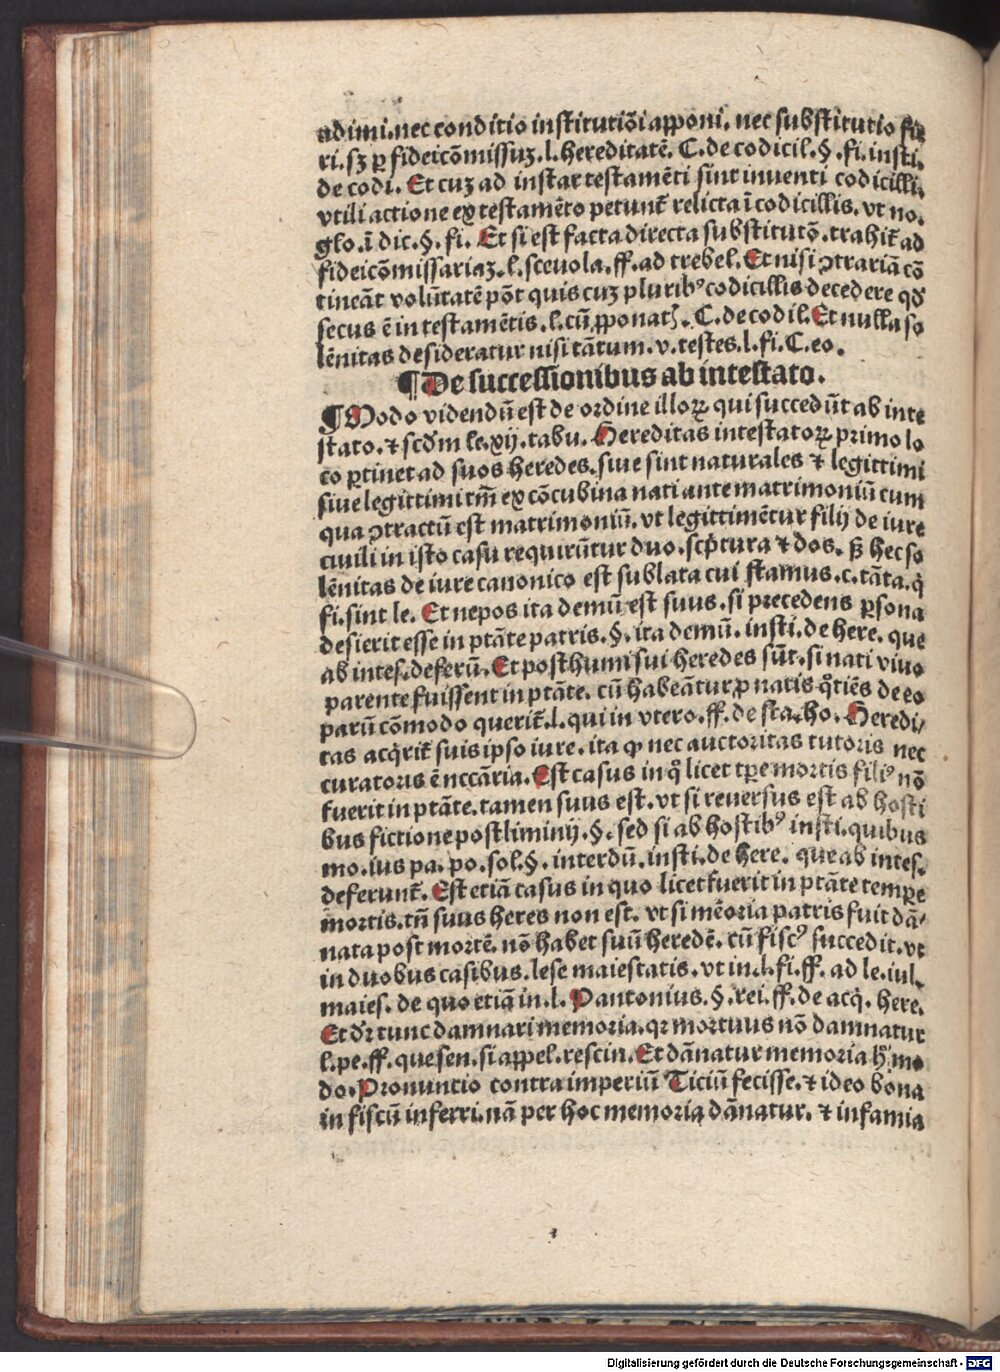 adimi.nec conditio institutiõi apponi. nec substitutio fie
ri. sʒ ꝑ fideicõmissuʒ. l. hereditatẽ. C. de codicil. §. fi. insti.
de codi. Et cuʒ ad instar testamẽti sint inuenti codicilli.
vtili actione ex testamẽto petunt̃ relicta ĩ codicillis. vt no.
glo. ĩ dic. §. fi. Et si est facta directa substitutõ. trahit̃ ad
fideicõmissariaʒ. l. sceuola. ff. ad trebel. Et nisi ꝯtrariã cõ
tineãt volũtatẽ põt quis cuʒ pluribꝰ codicillis decedere qđ
secus ẽ in testamẽtis. l. cũ ꝓponatꝭ. C. de codil. Et nulla so
lẽnitas desideratur nisi tãtum. v. testes. l. fi. C. eo.
¶ De successionibus ab intestato.
¶ Modo videndũ est de ordine illoꝝ qui succedũt ab inte
stato. ⁊ scđm le. xij. tabu. Hereditas intestatoꝝ primo lo
co ꝑtinet ad suos heredes. siue sint naturales ⁊ legittimi
siue legittimi tm̃ ex cõcubina nati ante matrimoniũ cum
qua ꝯtractũ est matrimoniũ. vt legittimẽtur filij de iure
ciuili in isto casu requirũtur duo. scp̃tura ⁊ dos. sꝫ hec so
lẽnitas de iure canonico est sublata cui stamus. c. tãta. q̇
fi. sint le. Et nepos ita demũ est suus. si precedens ꝑsona
desierit esse in ptãte patris. §. ita demũ. insti. de here. que
ab intes. deferũ. Et posthumi sui heredes sũt. si nati viuo
parente fuissent in ptãte. cũ habeãtur ꝓ natis q̊tiẽs de eo
parũ cõmodo querit̃. l. qui in vtero. ff. de sta. ho. Heredi/
tas acq̇rit̃ suis ipso iure. ita ꝙ nec auctoritas tutoris nec
curatoris ẽ nccãria. Est casus in q̊ licet tꝑe mortis filiꝰ nõ
fuerit in ptãte. tamen suus est. vt si reuersus est ab hosti
bus fictione postliminij. §. sed si ab hostibꝰ insti. quibus
mo. ius pa. po. sol. §. interdũ. insti. de here. que ab intes.
deferunt̃. Est etiã casus in quo licet fuerit in ptãte tempe
mortis. tñ suus heres non est. vt si mẽoria patris fuit dã/
nata post mortẽ. nõ habet suũ heredẽ. cũ fiscꝰ succedit. vt
in duobus casibus. lese maiestatis. vt in. l. fi. ff. ad le. iul.
maies. de quo etiã in. l. Pantonius. §. rei. ff. de acq̇. here.
Et dr̃ tunc damnari memoria. qꝛ mortuus nõ damnatur
l. pe. ff. que sen. si appel. rescin. Et dãnatur memoria h̊ mo
do. Pronuntio contra imperiũ Ticiũ fecisse. ⁊ ideo bona
in fiscũ inferri. nã per hoc memoria dãnatur. ⁊ infamia
Digitalisierung gefördert durch die Deutsche Forschungsgemeinschaft - DFG